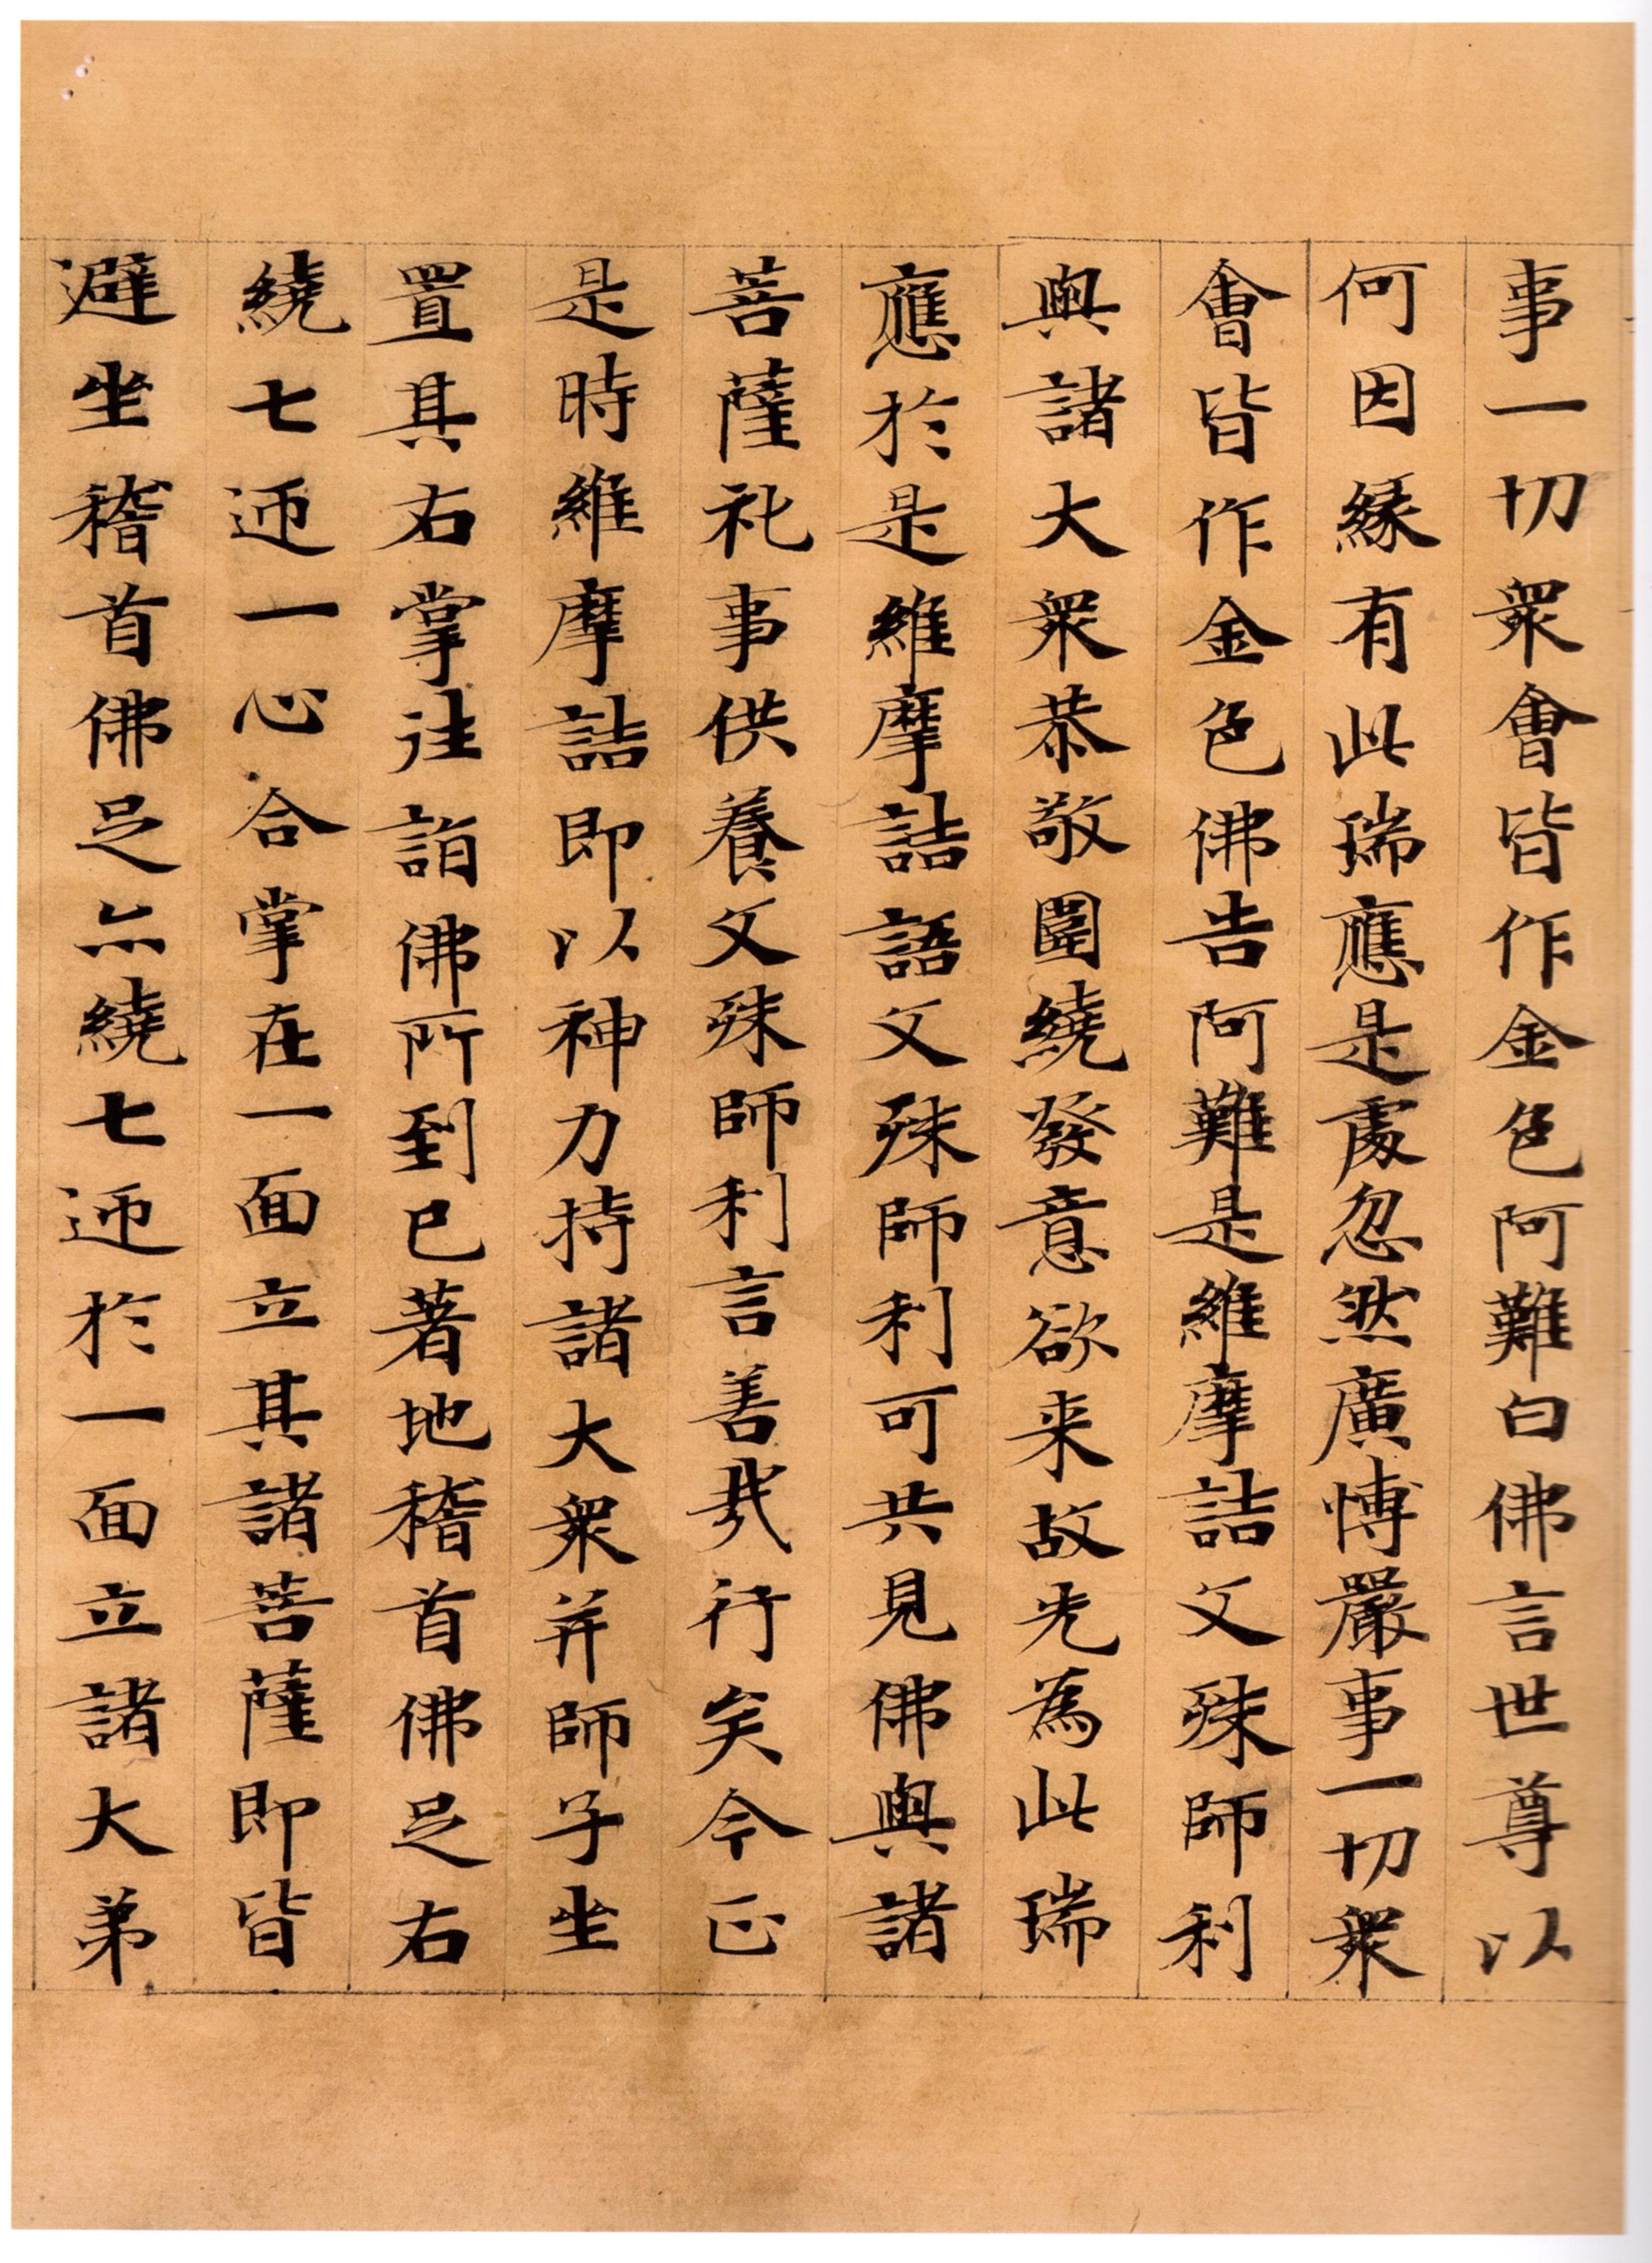 事一切衆會皆作金色阿難白佛言世尊以
何因縁有此瑞應是處忽然廣博嚴事一切衆
會皆作金色佛告阿難是維摩詰文殊師利
與諸大衆恭敬圍繞發意欲来故先為此瑞
應於是維摩詰語文殊師利可共見佛與諸
菩薩礼事供養文殊師利言善哉行矣今正
是時維摩詰即以神力持諸大衆并師子坐
置其右掌往詣佛所到已著地稽首佛足右
繞七迊一心合掌在一面立其諸菩薩即皆
避坐稽首佛足亦繞七迊於一面立諸大弟